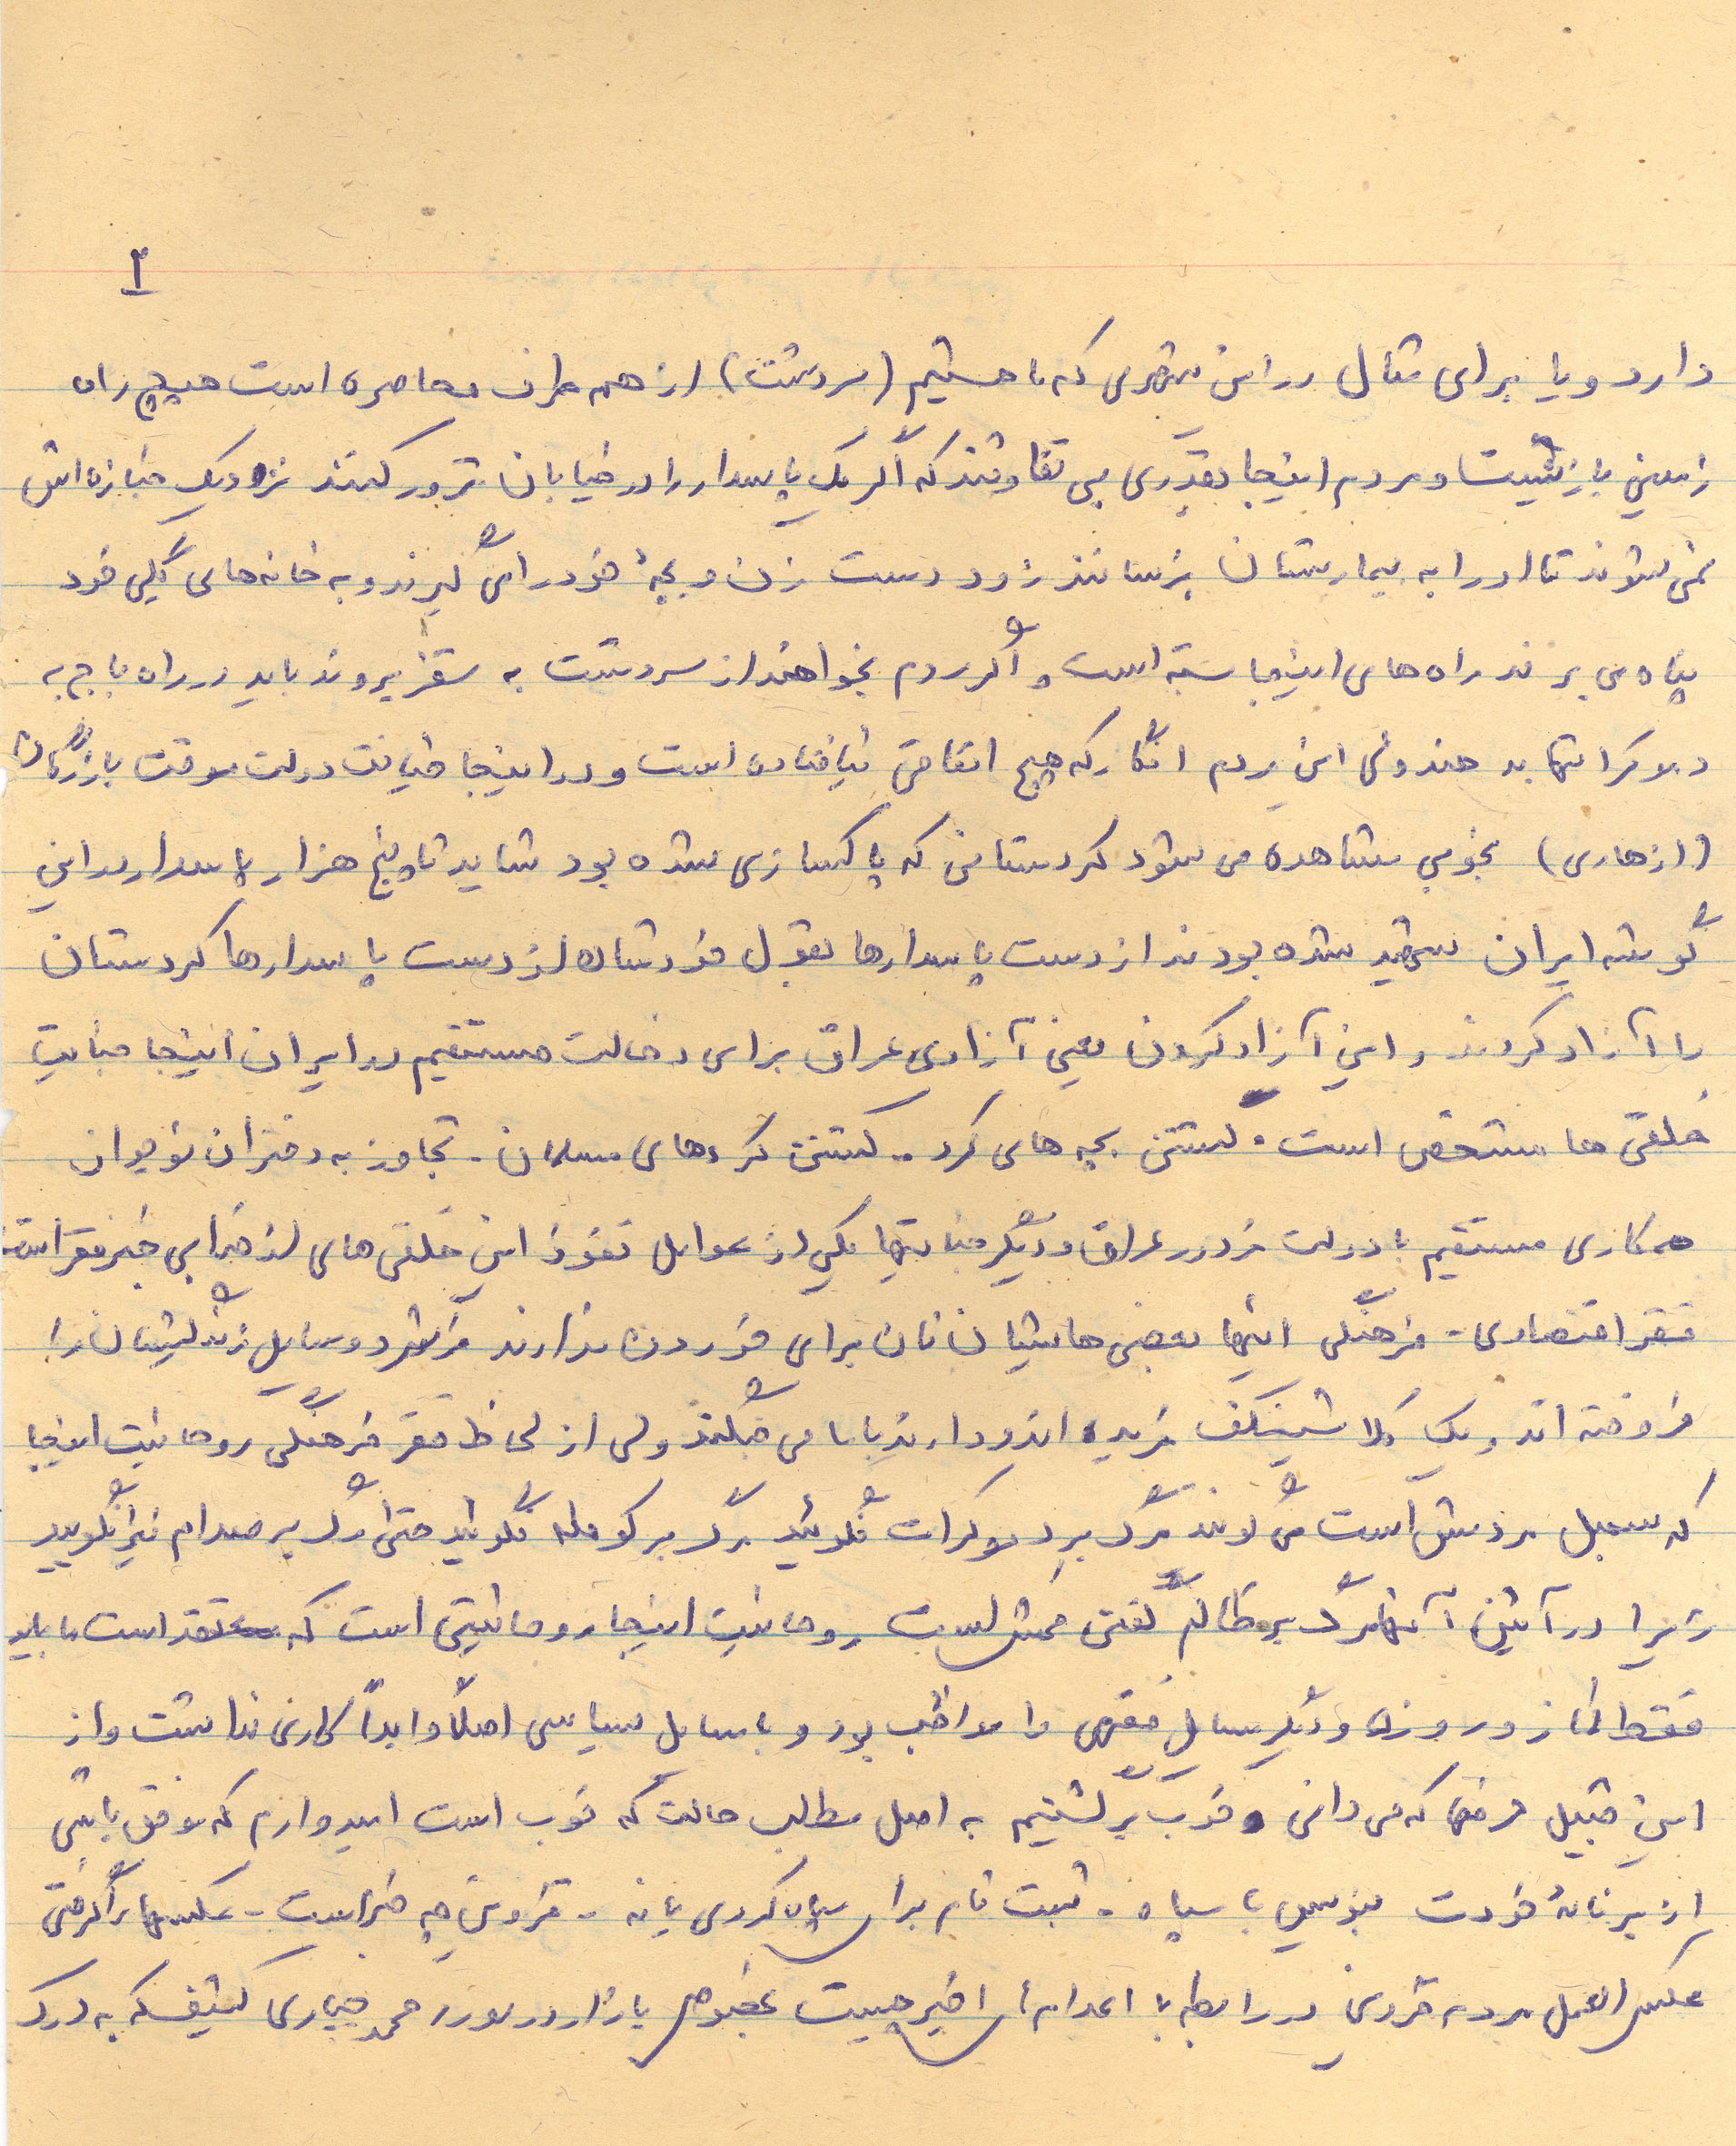 ۲
دارد و یا برای مثال در این شهری که ما هستیم (سردشت) از همه طرف محاصره است هیچ راه
زمینی باز نیست و مردم اینجا بقدری بی تفاوتند که اگر یک پاسدار را در خیابان ترور کنند نزدیک جنازه اش
نمی شوند تا او را به بیمارستان برسانند زود دست زن و بچهٔ خود را می گیرند و به خانه های گلی خود
پناه می برند راه های اینجا بسته است و اگر مردم بخواهند از سردشت به سقز بروند باید در راه باج به
دمکراتها بدهند ولی این مردم انگار که هیچ اتفاقی نیافتاده است و در اینجا خیانت دولت موقت بازرگان
(ازهاری) بخوبی مشاهده می شود کردستانی که پاکسازی شده بود شاید تا پنج هزار پاسدار در این
گوشه ایران شهید شده بودند از دست پاسدارها بقول خودشان از دست پاسدارها کردستان
را آزاد کردند و این آزاد کردن یعنی آزادی عراق برای دخالت مستقیم در ایران اینجا جنایت
خلقی ها مشخص است . کشتن بچه های کرد - کشتن کردهای مسلمان - تجاوز به دختران نوجوان
همکاری مستقیم با دولت مزدور عراق و دیگر جنایتها یکی از عوامل نفوذ این خلقی های از خدا بی خبر فقر است
فقر اقتصادی - فرهنگی اینها بعضی هایشان نان برای خوردن ندارند فرش و وسایل زندگیشان را
فروخته اند و یک کلاشینکف خریده اند و دارند با ما می جنگند ولی از لحاظ فقر فرهنگی روحانیت اینجا
که سمبل مردمش است می گویند مرگ بر دموکرات نگوئید مرگ بر کومله نگوئید حتی مرگ بر صدام نیز نگویید
زیرا در آئین آنها مرگ بر ظالم گفتن فحش است روحانیت اینجا روحانیتی است که معتقد است ما باید
فقط نماز و روزه و دیگر مسایل فقهی را مواظب بود و با مسایل سیاسی اصلاً و ابداً کاری نداشت و از
این قبیل حرفها که می دانی و خوب برگشتیم به اصل مطلب حالت که خوب است امیدوارم که موفق باشی
از برنامهٔ خودت بنویس با سپاه - ثبت نام برا سپاه کردی یا نه - قزوین چه خبر است - عکسها را گرفتی
عکس العمل مردم قزوین در رابطه با اعدام اخیر چیست بخصوص بازار در مورد محمد کثیف که به درک